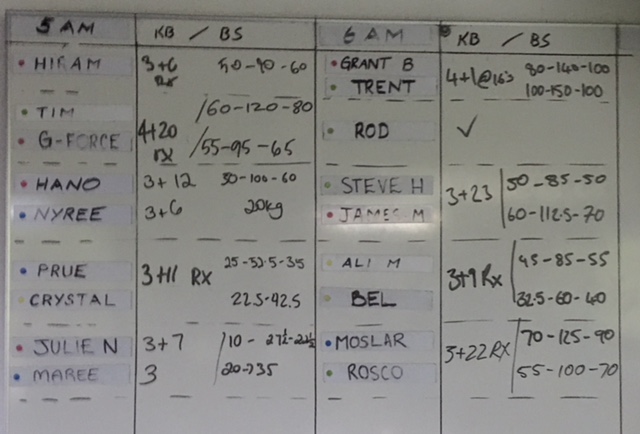 5 AM KB / BS 6 AM KB / BS
HIRAM 3+6 Rx 50-90-60
GRANT B 80-140-100
TRENT 4+1@16's 100-150-100
TIM /60-120-80
G-FORCE 4+20 rx /55-95-65
ROD ✓
HANO 3+12 50-100-60
NYREE 3+6 20kg
STEVE H 3+23 50-85-50
JAMES M 60-112.5-70
PRUE 3+11 RX 25-32.5-35
CRYSTAL 22.5-42.5
ALI M 3+9 Rx 45-85-55
BEL 32.5-60-40
JULIE N 3+7 /10- 27½-22½
MAREE 3 20->35
MOSLAR 3+22 RX 70-125-90
ROSCO 55-100-70